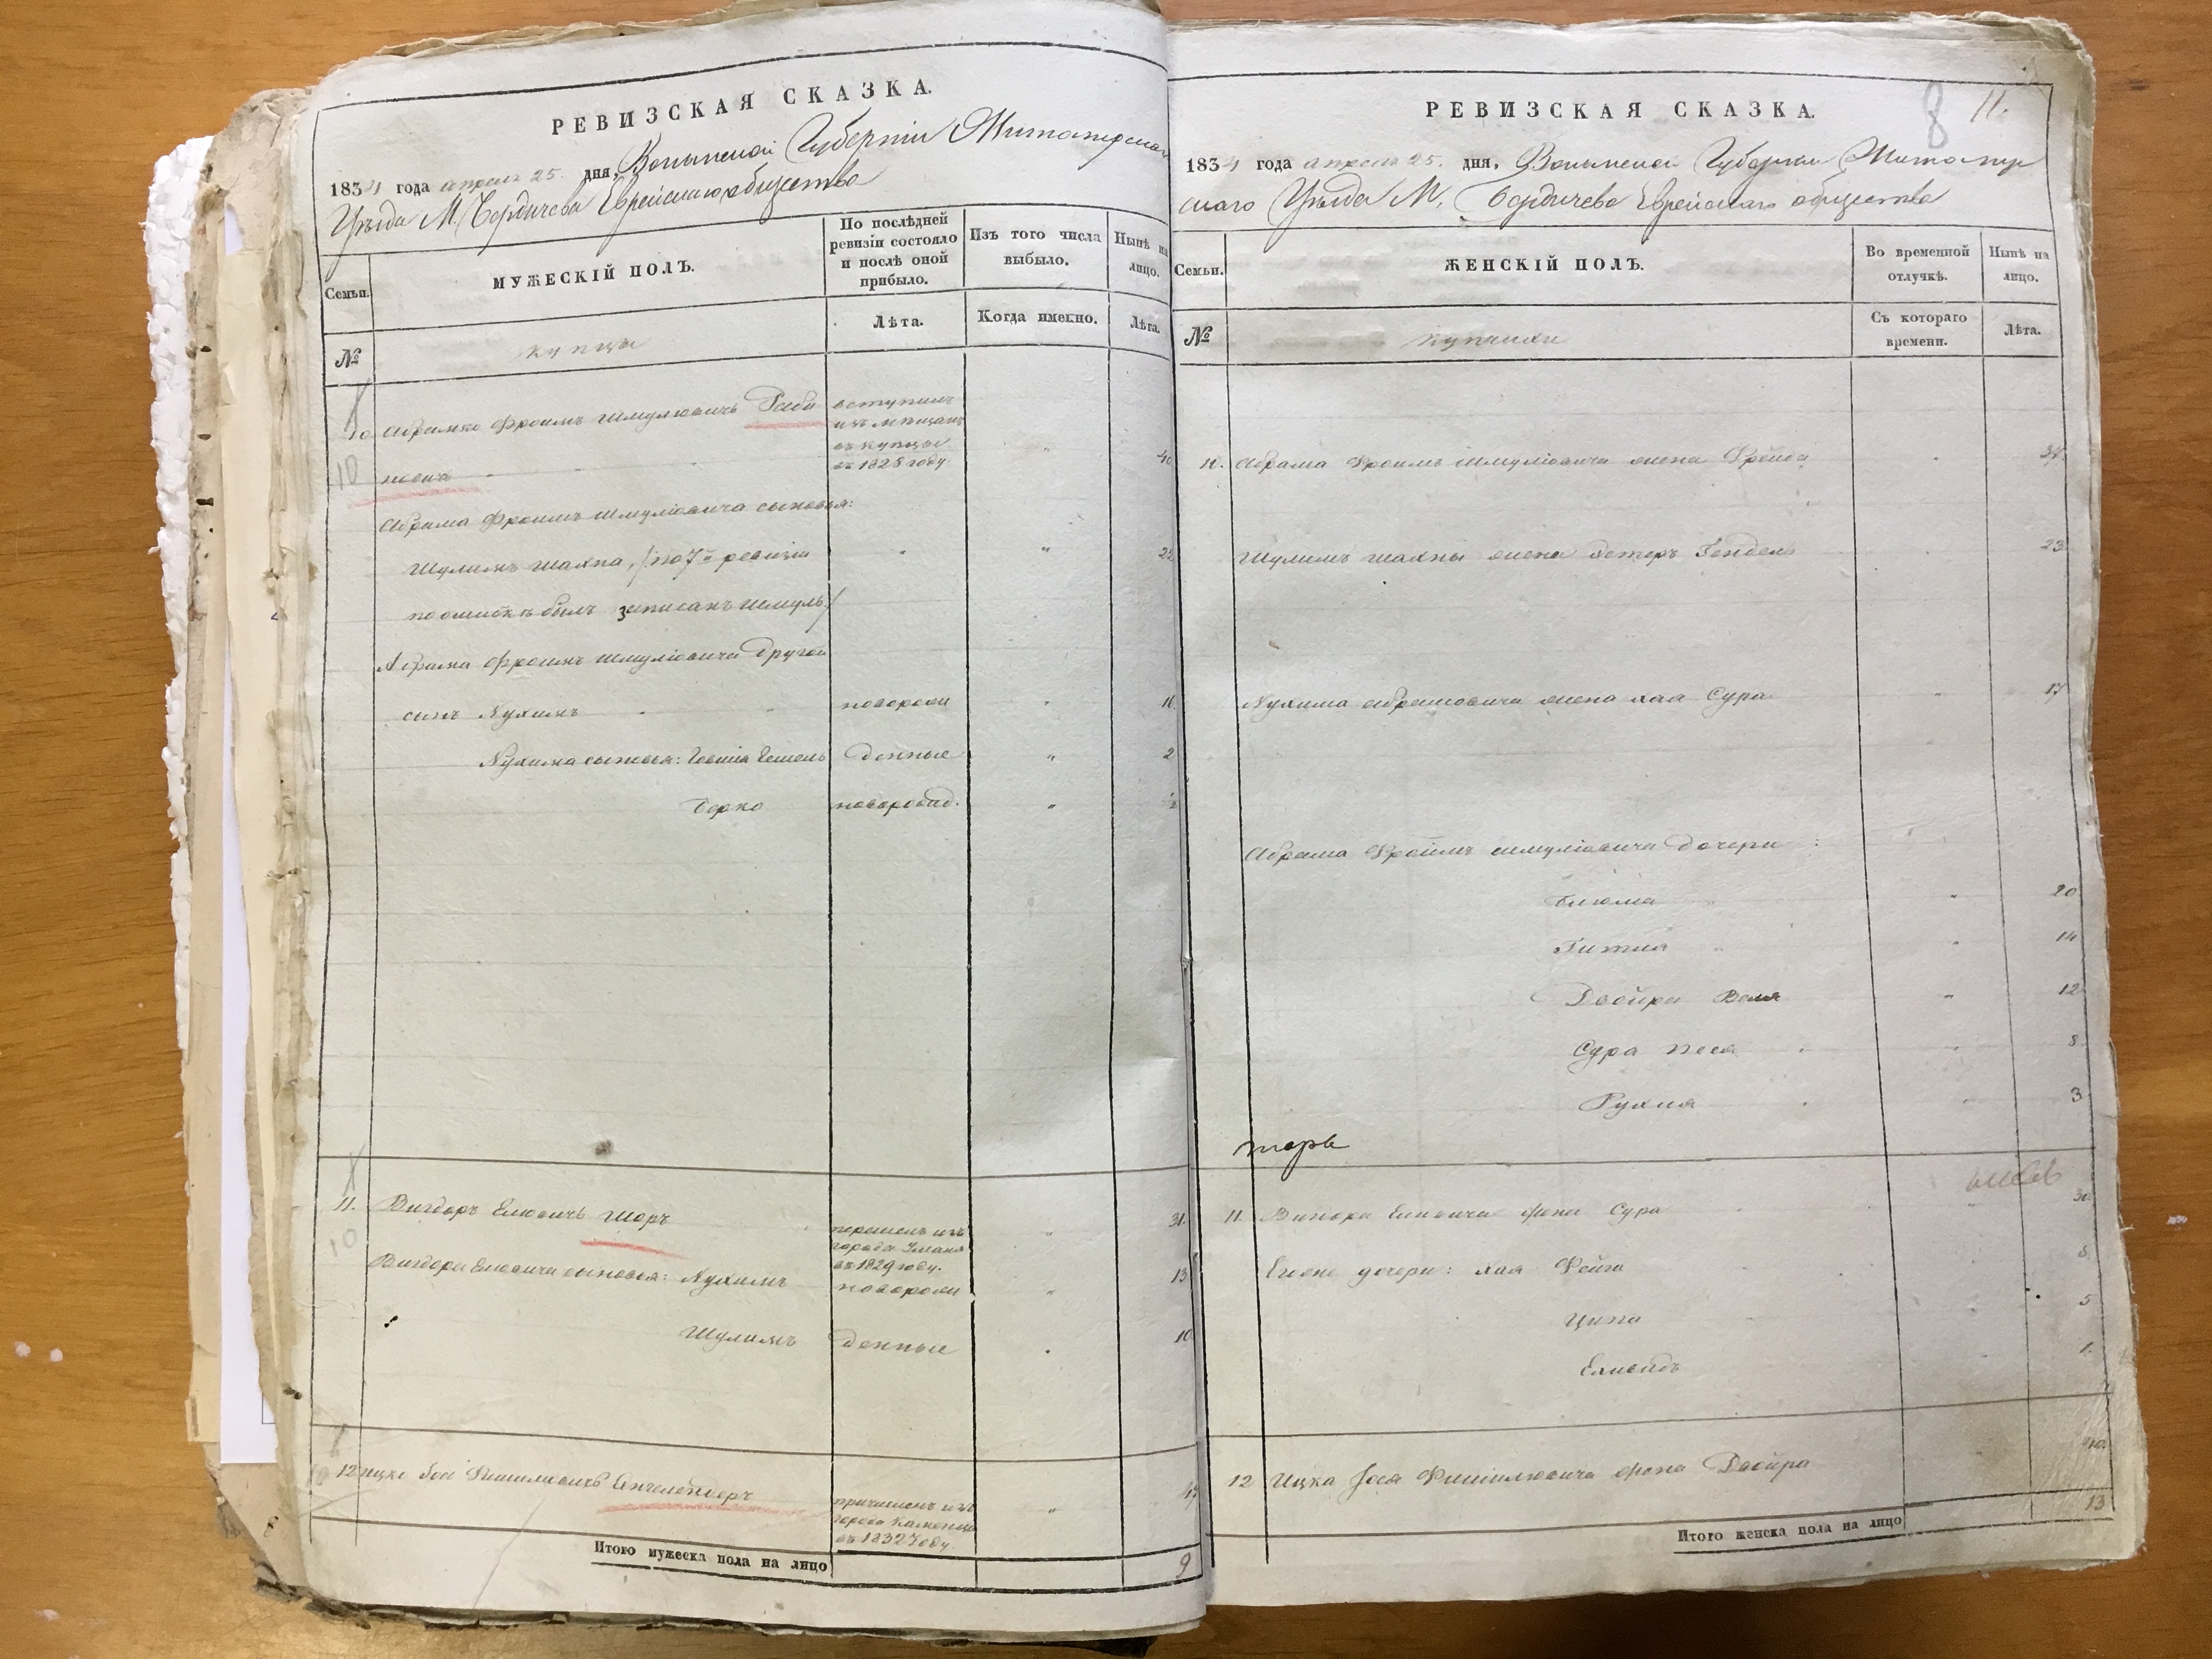 РЕВИЗСКАЯ СКАЗКА.
1834 года апреля 25. дня, Волынской Губерніи Житомирскаго
Уѣзда М. Бердичева Еврейскаго общества
Семьи.
МУЖЕСКІЙ ПОЛЪ.
По послѣдней
ревизіи состояло
и послѣ оной
прибыло.
Изъ того числа
выбыло.
Нынѣ на
лицо.
№
купцы
Лѣта.
Когда именно.
Лѣта.
10 Абрамко Фроимъ Шмулювичъ Раби
новичъ
вступилъ
изъ мещанъ
въ купцы
въ 1828 году.
10
Абрама Фроимъ Шмуліовича сыновья:
Шулимъ Шахна, /по 7й ревизіи
по ошибкѣ былъ записанъ Шмуль/
Абрама Фроимъ Шмуліовича другой
сынъ Нухимъ поворожи
Нухима сыновья: Іевна Гешель денные 2
Берко новорожд.
11. Вигдоръ Елювичъ Шоръ 31.
перешелъ изъ
города Уманя
въ 1829 году.
10
Вигдора Елювича сыновья: Нухимъ новорож 13
Шулимъ денные 10
12 Ицко Іось Фишилювичъ Енгелендеръ
причисленъ изъ
города Каменца
въ 1832 году.
Итого мужеска пола на лицо 9
РЕВИЗСКАЯ СКАЗКА.
8 11.
1834 года апреля 25. дня, Волынской Губерніи Житомир
скаго Уѣзда М. Бердичева Еврейскаго общества
Семьи.
ЖЕНСКІЙ ПОЛЪ.
Во временной
отлучкѣ.
Нынѣ на
лицо.
№
купчихи
Съ котораго
времени.
Лѣта.
10. Абрама Фроимъ Шмуліовича жена Фрейда
Шулимъ Шахны жена Естеръ Гендель 23
Нухима Абрамовича жена Хая Сура 17
Абрама Фроимъ Шмуліовича дочери:
Блюма 20
Гитля 14
Двойра Бейла 12
Сура Песя 8
Рухля 3
Шоръ
11. Вигдора Елювича жена Сура 30
Егоже дочери: Хая Фейга 8
Ципа 5
1.
12 Ицка Іося Фишилювича жена Двойра 40
Итого женска пола на лицо 13